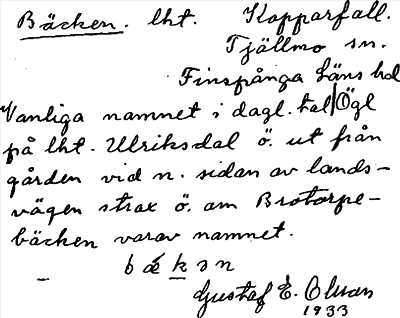 Bäcken. lht. Kopparfall.
Tjällmo sn.
Finspånga läns hd
Vanliga namnet i dagl. tal Ögl
på lht. Ulriksdal ö. ut från
gården vid n. sidan av lands-
vägen strax ö. om Brotorpe-
bäcken varav namnet.
b ǽ k ə n
Gustaf E. Olsson
1933